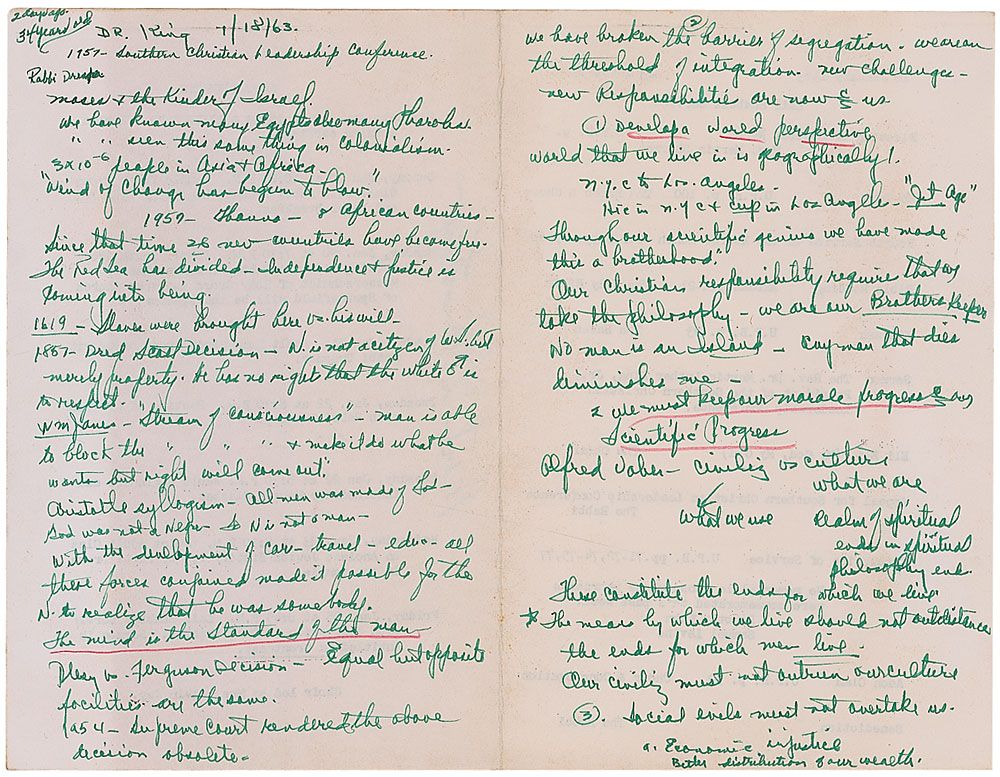 2 days ago.
34 years old
DR. King 1/18/63.
1957 - Southern Christian Leadership Conference.
Rabbi
Moses & the Kinder of Israel.
we have known many Egypts also many Pharohs.
" " seen this same thing in colonialism.
3x10-6 people in Asia & Africa -
"Wind of Change has begun to blow."
1957 - Ghanna - 8 African countries -
Since that time 26 new countries have become free.
The Red Sea has divided - Independence & justice is
coming into being.
1619 - Slaves were brought here vs. his will -
1857 - Dred Scott Decision - N. is not a citizen of U.S. but
merely property. He has no rights that the white is
to respect.
Wm James - "Stream of consciousness" - man is able
to block the " " " & make it do what he
wants but right will come out.
Aristotle syllogism - All men was made of God -
God was not a Negro - So N is not a man -
With the development of car - travel - educ - all
these forces made it possible for the
N. to realize that he was somebody.
The mind is the Standard of the man
Plessy vs. Ferguson Decision - Equal but opposite
facilities are the same.
1954 - Supreme Court rendered the above
decision obsolete -
2
we have broken the barrier of segregation - we are on
the threshold of integration. new challenges -
new Responsibilities are now us
① Develop a world perspective
world that we live in is geographically 1.
N.Y.C to Los. Angeles -
Hic in N.Y.C & cup in Los Angeles - "Jet Age"
Through our scientific genius we have made
this a brotherhood."
Our Christian responsibility require that we
take the philosophy - we are our Brothers Keeper
No man is an Island - any man that dies
diminishes me -
2 we must keep our morale progress our
Scientific Progress
Alfred - civiliz vs culture
what we are
what we use Realm of spiritual
ends in spiritual
philosophy end.
These constitute the ends for which we live
* The means by which we live should not outdistance
the ends for which men live.
Our civiliz must not outrun our culture
③. Social evils must not overtake us.
a. Economic injustice
Better distribution of our wealth.